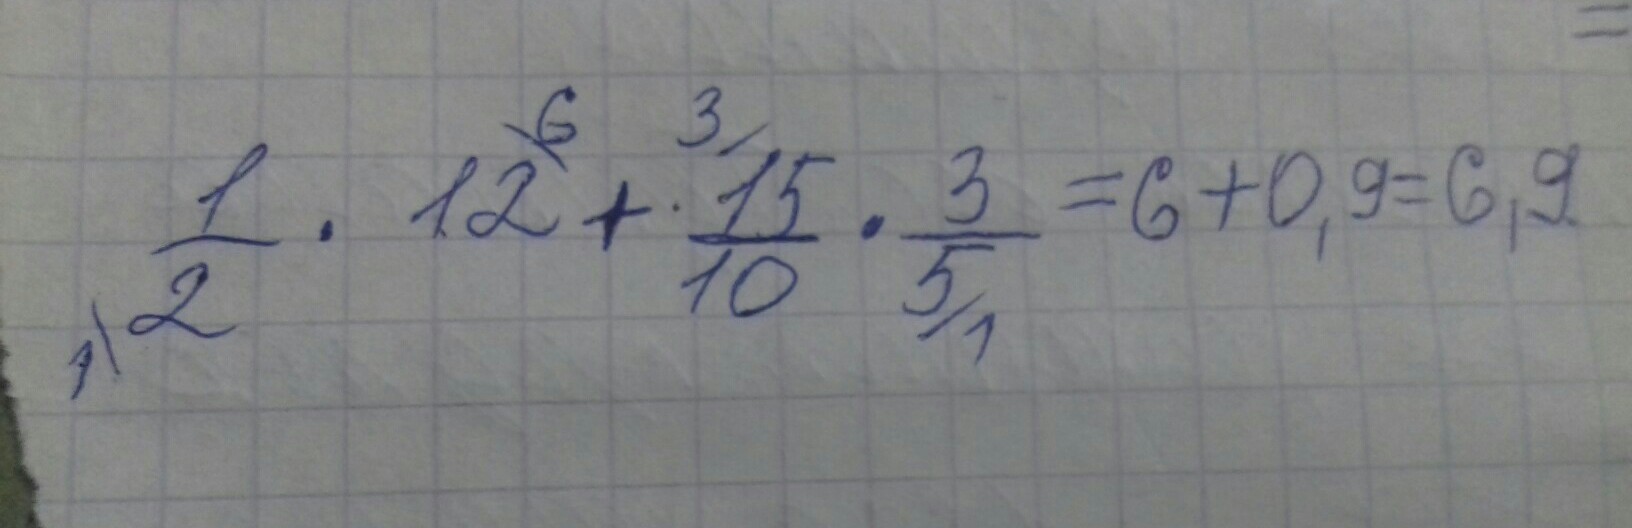 =
1/2 · 12 + · 15/10 · 3/5 = 6 + 0,9 = 6,9
6 3
1 1